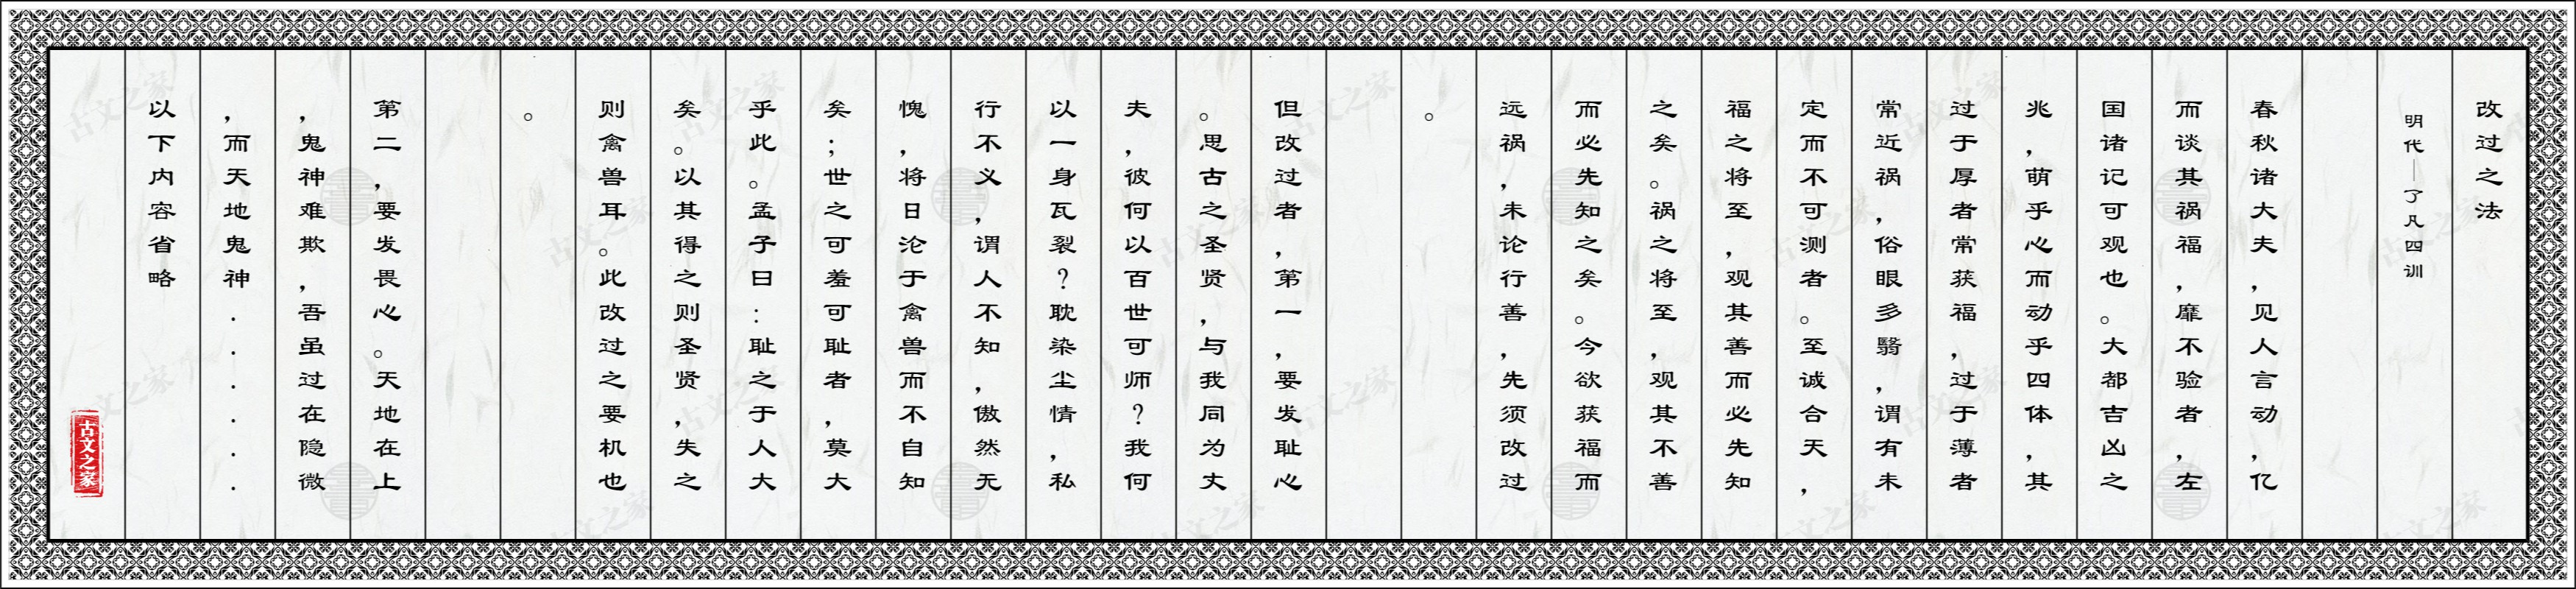 改过之法
明代—了凡四训
春秋诸大夫，见人言动，亿
而谈其祸福，靡不验者，左
国诸记可观也。大都吉凶之
兆，萌乎心而动乎四体，其
过于厚者常获福，过于薄者
常近祸，俗眼多翳，谓有未
定而不可测者。至诚合天，
福之将至，观其善而必先知
之矣。祸之将至，观其不善
而必先知之矣。今欲获福而
远祸，未论行善，先须改过
。
但改过者，第一，要发耻心
。思古之圣贤，与我同为丈
夫，彼何以百世可师？我何
以一身瓦裂？耽染尘情，私
行不义，谓人不知，傲然无
愧，将日沦于禽兽而不自知
矣；世之可羞可耻者，莫大
乎此。孟子曰：耻之于人大
矣。以其得之则圣贤，失之
则禽兽耳。此改过之要机也
。
第二，要发畏心。天地在上
，鬼神难欺，吾虽过在隐微
，而天地鬼神......
以下内容省略
古文之家